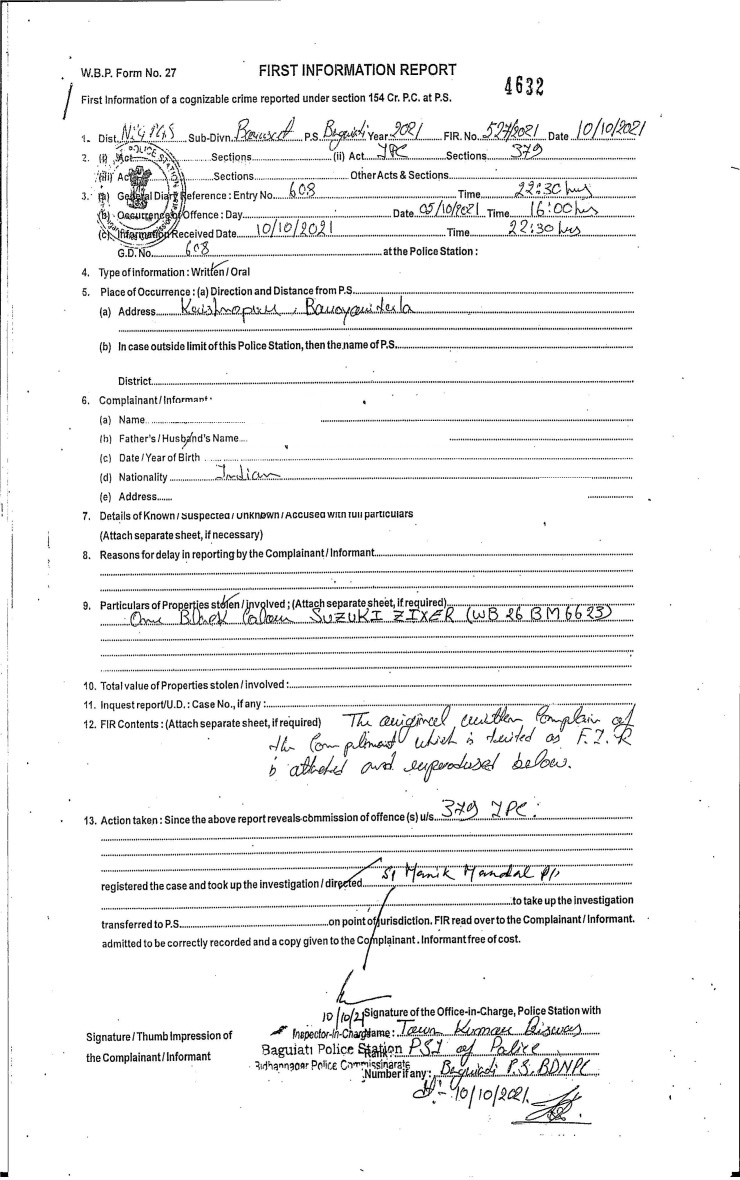 W.B.P. Form No. 27 FIRST INFORMATION REPORT 4632
First Information of a cognizable crime reported under section 154 Cr. P.C. at P.S.
1. Dist. N 24 PGS Sub-Divn. Barasat P.S. Baguiati Year 2021 FIR. No. 527/2021 Date 10/10/2021
2. (i) Act Sections (ii) Act IPC Sections 379
(iii) Act Sections Other Acts & Sections
3. (a) General Diary Reference : Entry No. 608 Time 22:30 hrs
(b) Occurrence of Offence : Day Date 05/10/2021 Time 16:00 hrs
(c) Information Received Date 10/10/2021 Time 22:30 hrs
G.D. No. 608 at the Police Station :
4. Type of information : Written / Oral
5. Place of Occurrence : (a) Direction and Distance from P.S.
(a) Address Krishnapur,
(b) In case outside limit of this Police Station, then the name of P.S.
District
6. Complainant / Informant :
(a) Name
(b) Father's / Husband's Name
(c) Date / Year of Birth
(d) Nationality Indian
(e) Address
7. Details of Known / Suspected / Unknown / Accused with full particulars
(Attach separate sheet, if necessary)
8. Reasons for delay in reporting by the Complainant / Informant
9. Particulars of Properties stolen / involved ; (Attach separate sheet, if required)
One Black Colour SUZUKI ZIXER (WB 26 BM 6623)
10. Total value of Properties stolen / involved :
11. Inquest report/U.D. : Case No., if any :
12. FIR Contents : (Attach separate sheet, if required) The original written Complain of
the Complinant which is treated as F.I.R
is attached and reproduced below.
13. Action taken : Since the above report reveals commission of offence (s) u/s. 379 IPC.
registered the case and took up the investigation / directed SI Manik Mandal
to take up the investigation
transferred to P.S. on point of jurisdiction. FIR read over to the Complainant / Informant.
admitted to be correctly recorded and a copy given to the Complainant. Informant free of cost.
10/10/21 Signature of the Office-in-Charge, Police Station with
Signature / Thumb Impression of Inspector-In-Charge Name : Tarun Kumar Biswas
the Complainant / Informant Baguiati Police Station Rank : PSI of Police
Bidhannagar Police Commissinarate Number if any : Baguiati P.S. BDNPC
10/10/2021.